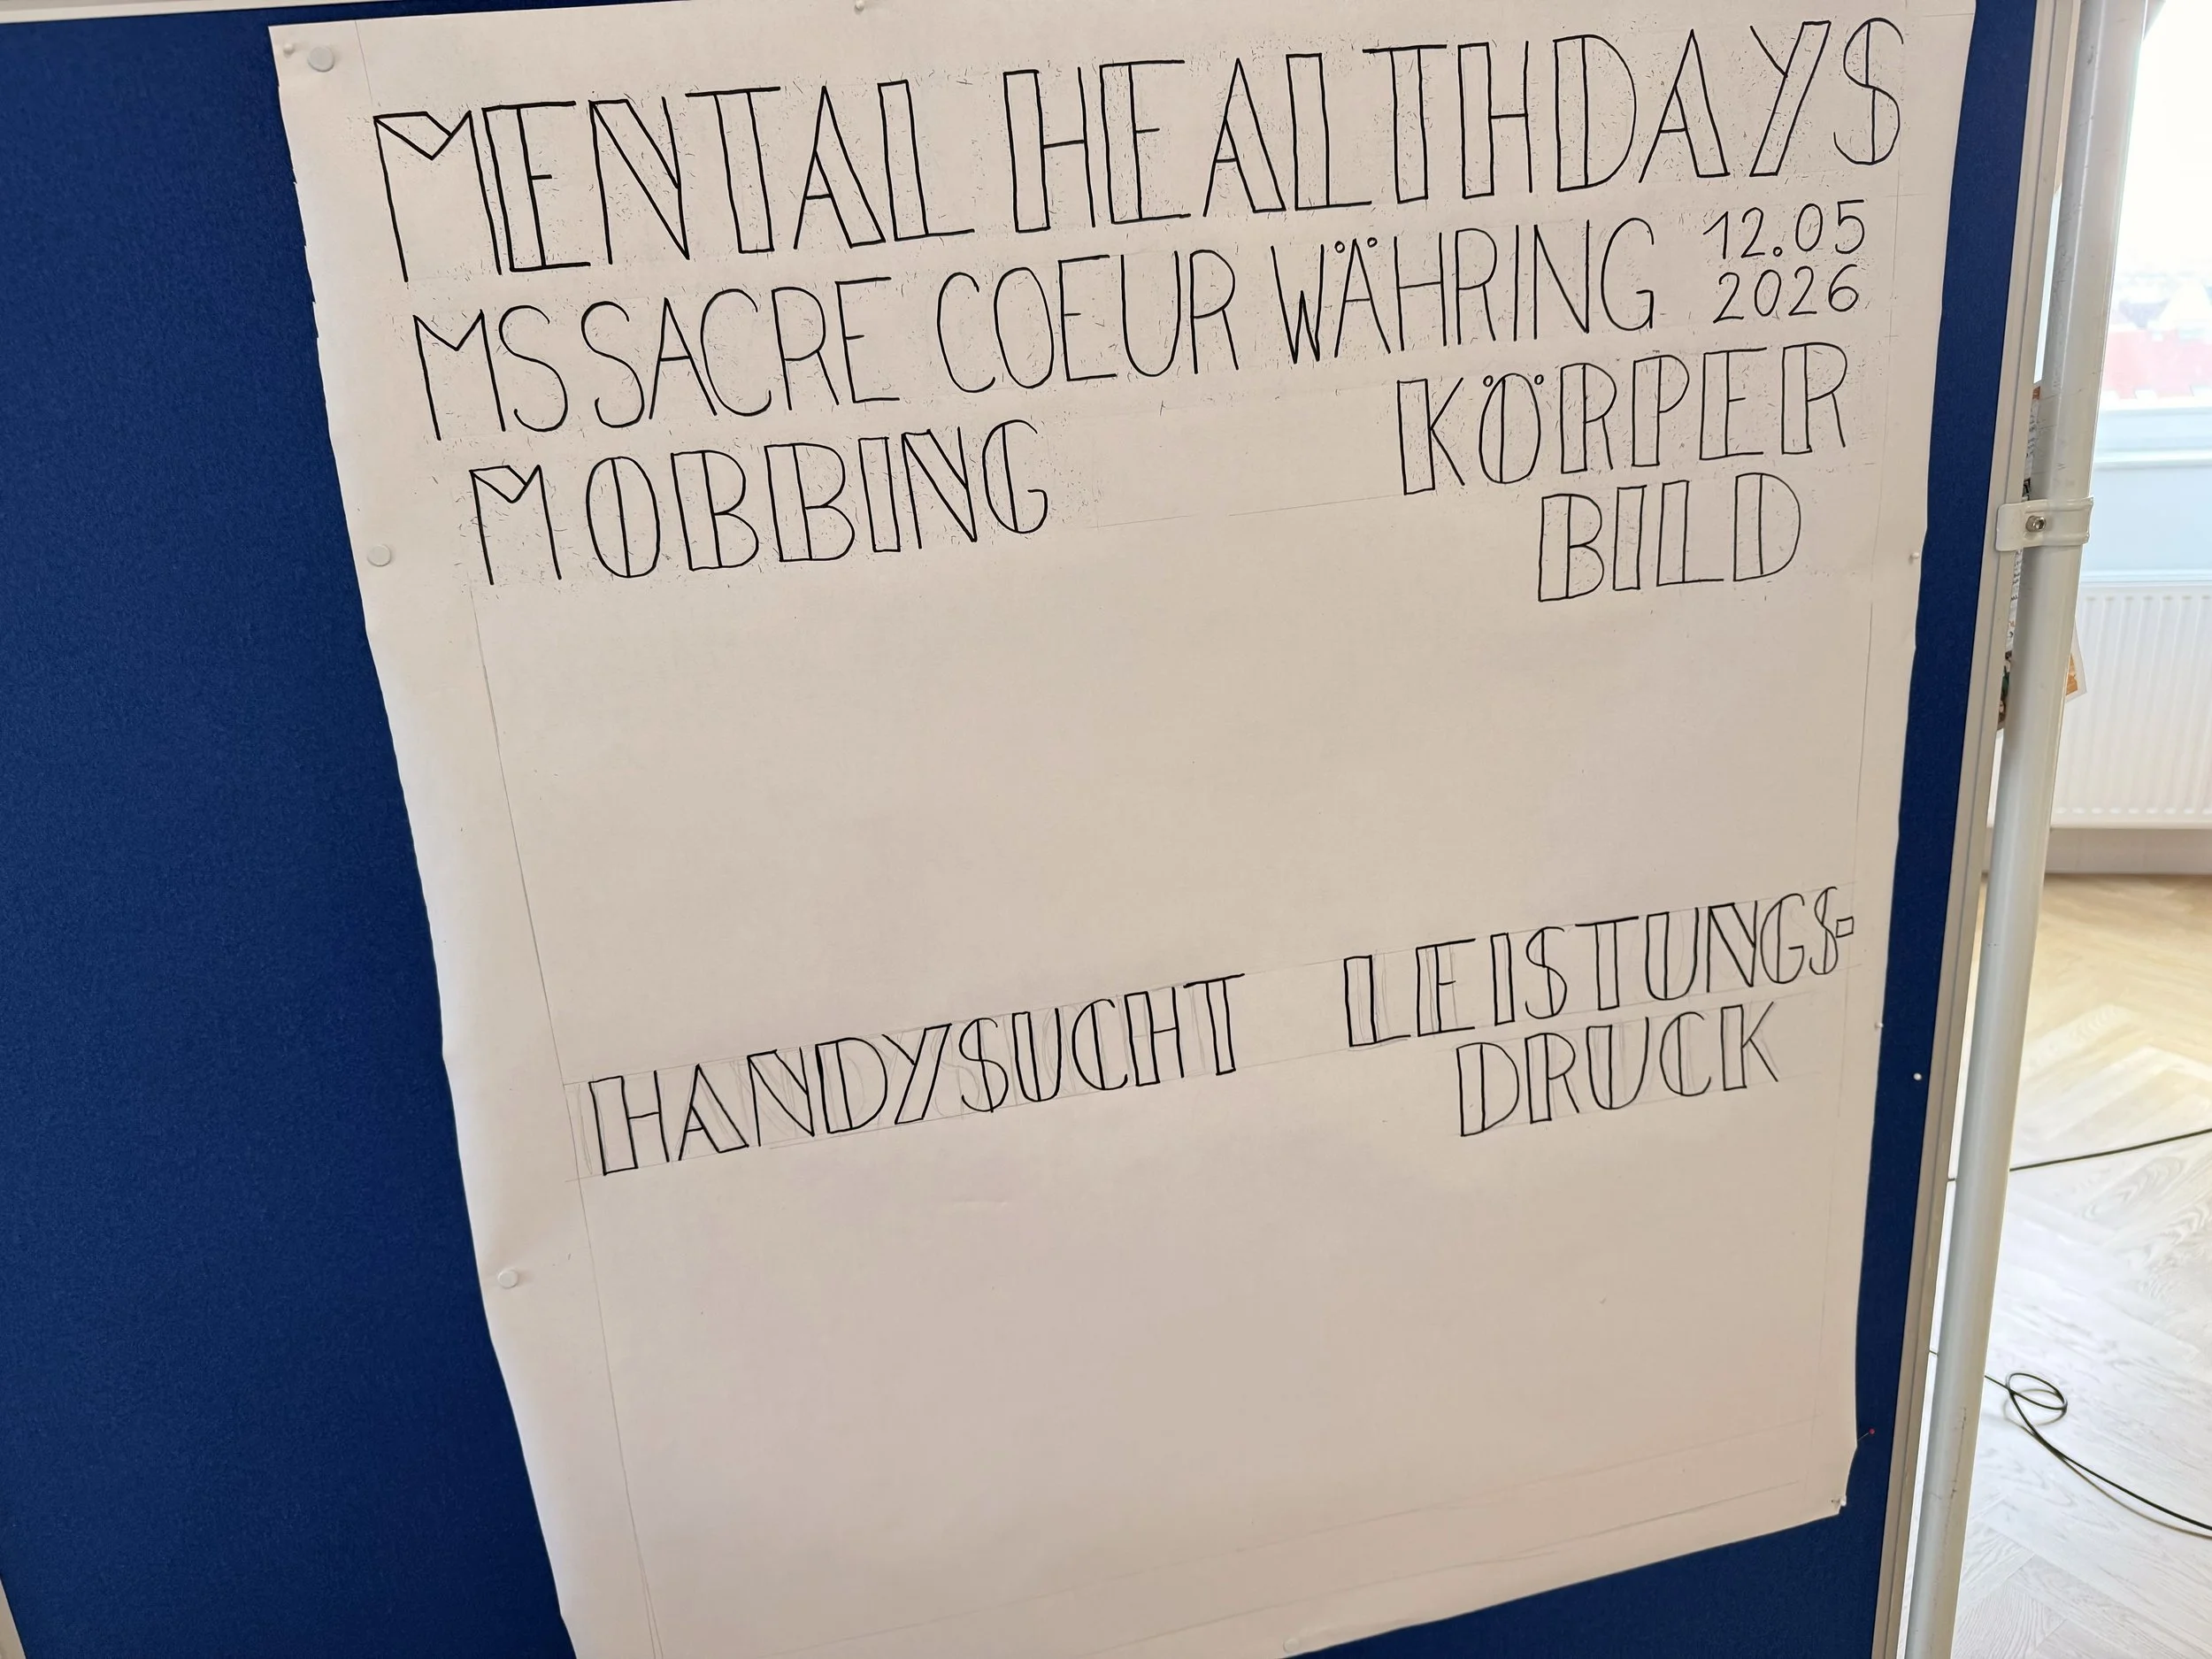 MENTAL HEALTHDAYS
MS SACRE COEUR WÄHRING
12.05
2026
MOBBING
KÖRPER
BILD
HANDYSUCHT
LEISTUNGS-
DRUCK